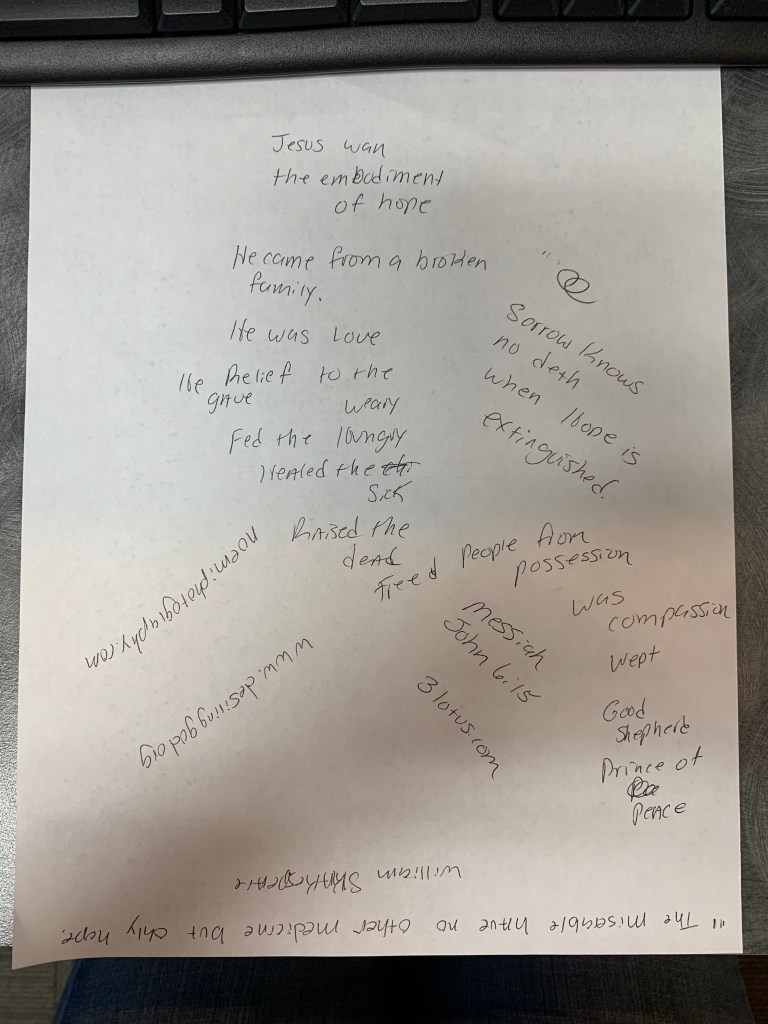 Jesus wan
the embodiment
of hope
He came from a broken
family.
He was Love
He Relief to the
gave weary
Fed the Hungry
Healed the
Sick
Raised the
dead
Freed people from
possession
was
compassion
wept
Good
Shepherd
Prince of
Peace
"
Sorrow Knows
no deth
when Hope is
extinguished.
Messiah
John 6:15
3lotus.com
noemiphotography.com
www.desiringgod.org
"The miserable have no other medicine but only hope.
William Shakespeare